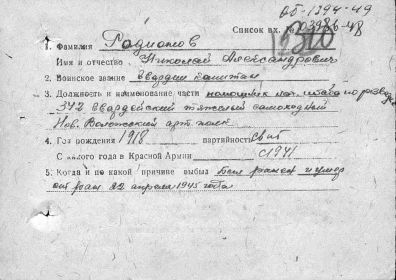 вб-1394-49
Список вх. № 03986-48
1. Фамилия Радионов
Имя и отчество Николай Александрович
2. Воинское звание гвардии капитан
3. Должность и наименование части помощник нач. штаба по разведке
342 гвардейский тяжелый самоходный
арт. полк
4. Год рождения 1918 партийность
С какого года в Красной Армии с 1941
5. Когда и по какой причине выбыл был ранен и умер
от ран 22 апреля 1945 года